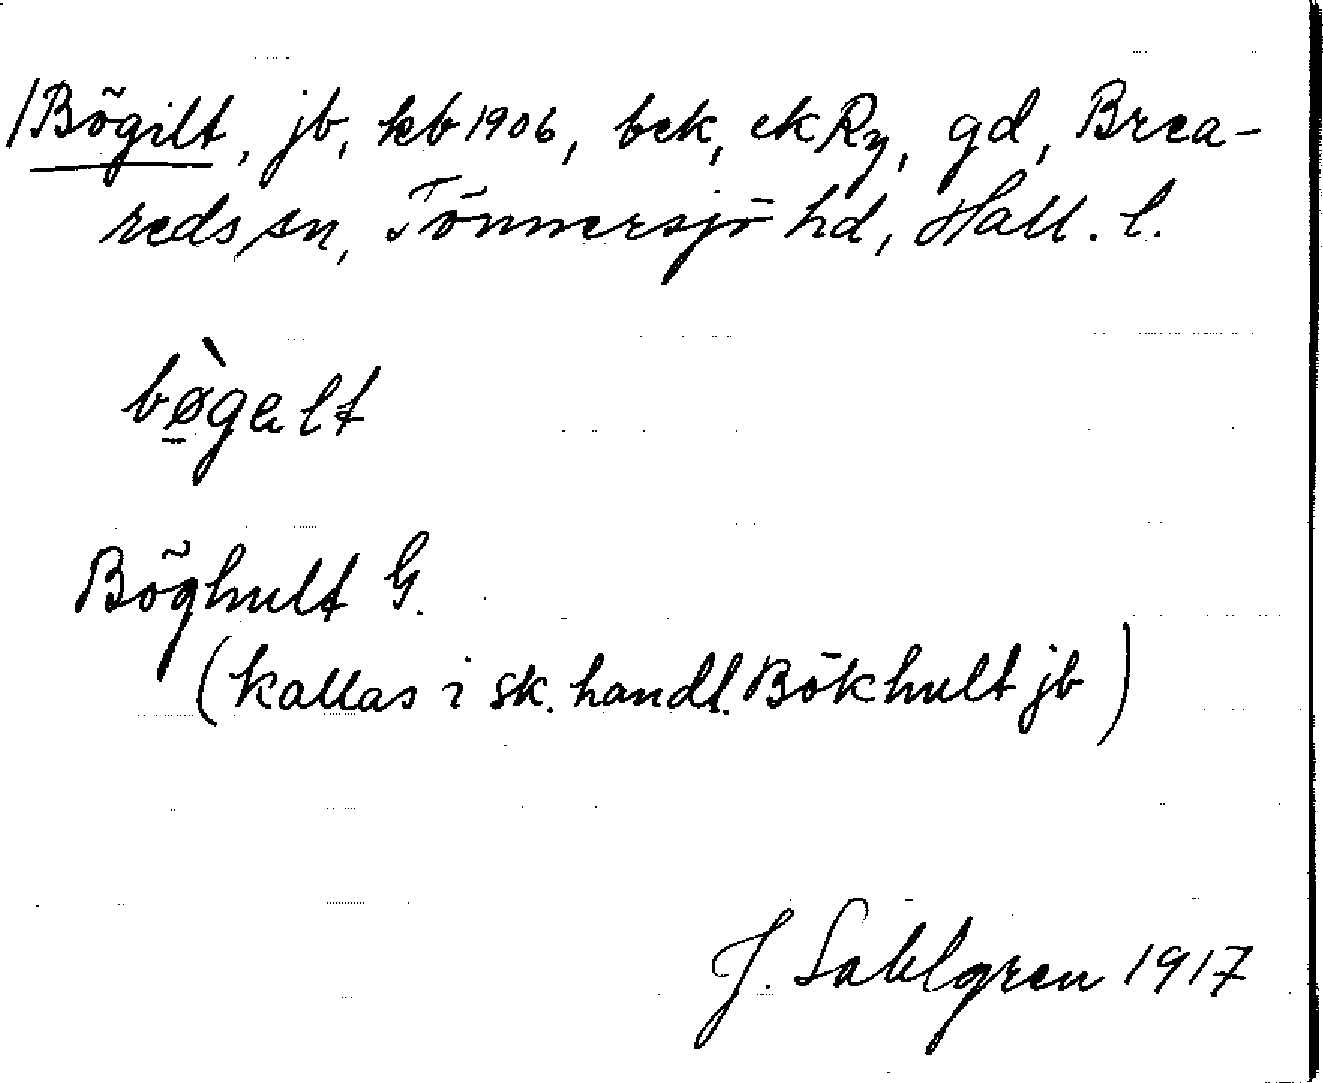 /Bögilt, jb, kb 1906, bek, ek Ry, gd, Brea-
reds sn, Tönnersjö hd, Hall. l.
bø̀galt
Böghult G.
(kallas i sk. handl. Bökhult jb)
J. Sahlgren 1917